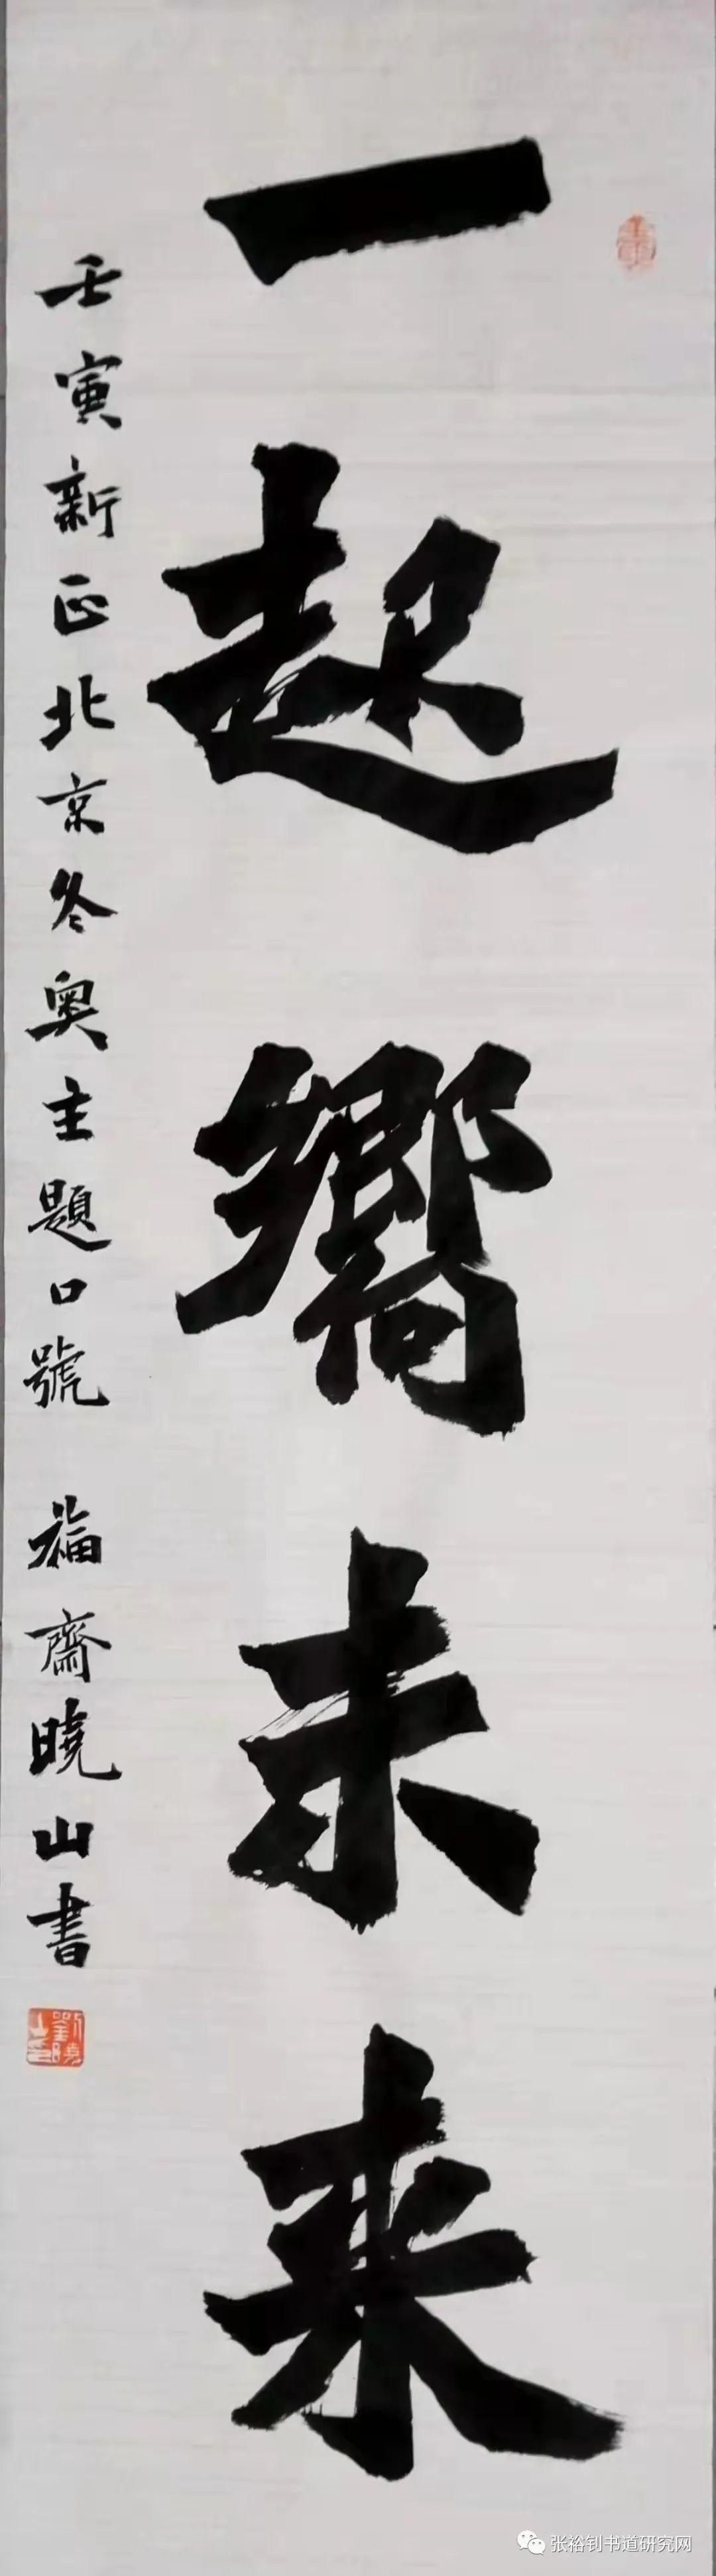 一起嚮未来
壬寅新正北京冬奥主題口號 福齋曉山書
张裕钊书道研究网